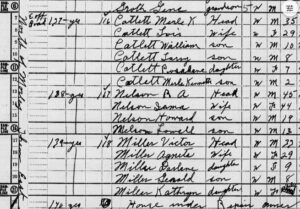 Groth Gene grandson 5 N M
137 yes 116 Catlett Merle K Head W M 35
Catlett Lois wife W F 29
Catlett William son W M 10
Catlett Larry son W M 8
Catlett daughter W F 7
Catlett Merle Kenneth son W M 2
138 yes 117 Nelson B A Head W M 45
Nelson Zama wife W F 44
Nelson Howard son W M 19
Nelson Lowell son W M 13
139 yes 118 Miller Victor Head W M 32
Miller Agneta wife W F 29
Miller Darlene daughter W F 9
Miller Gerald son W M 8
Miller Kathryn daughter W F
140 yes House under Repair owner